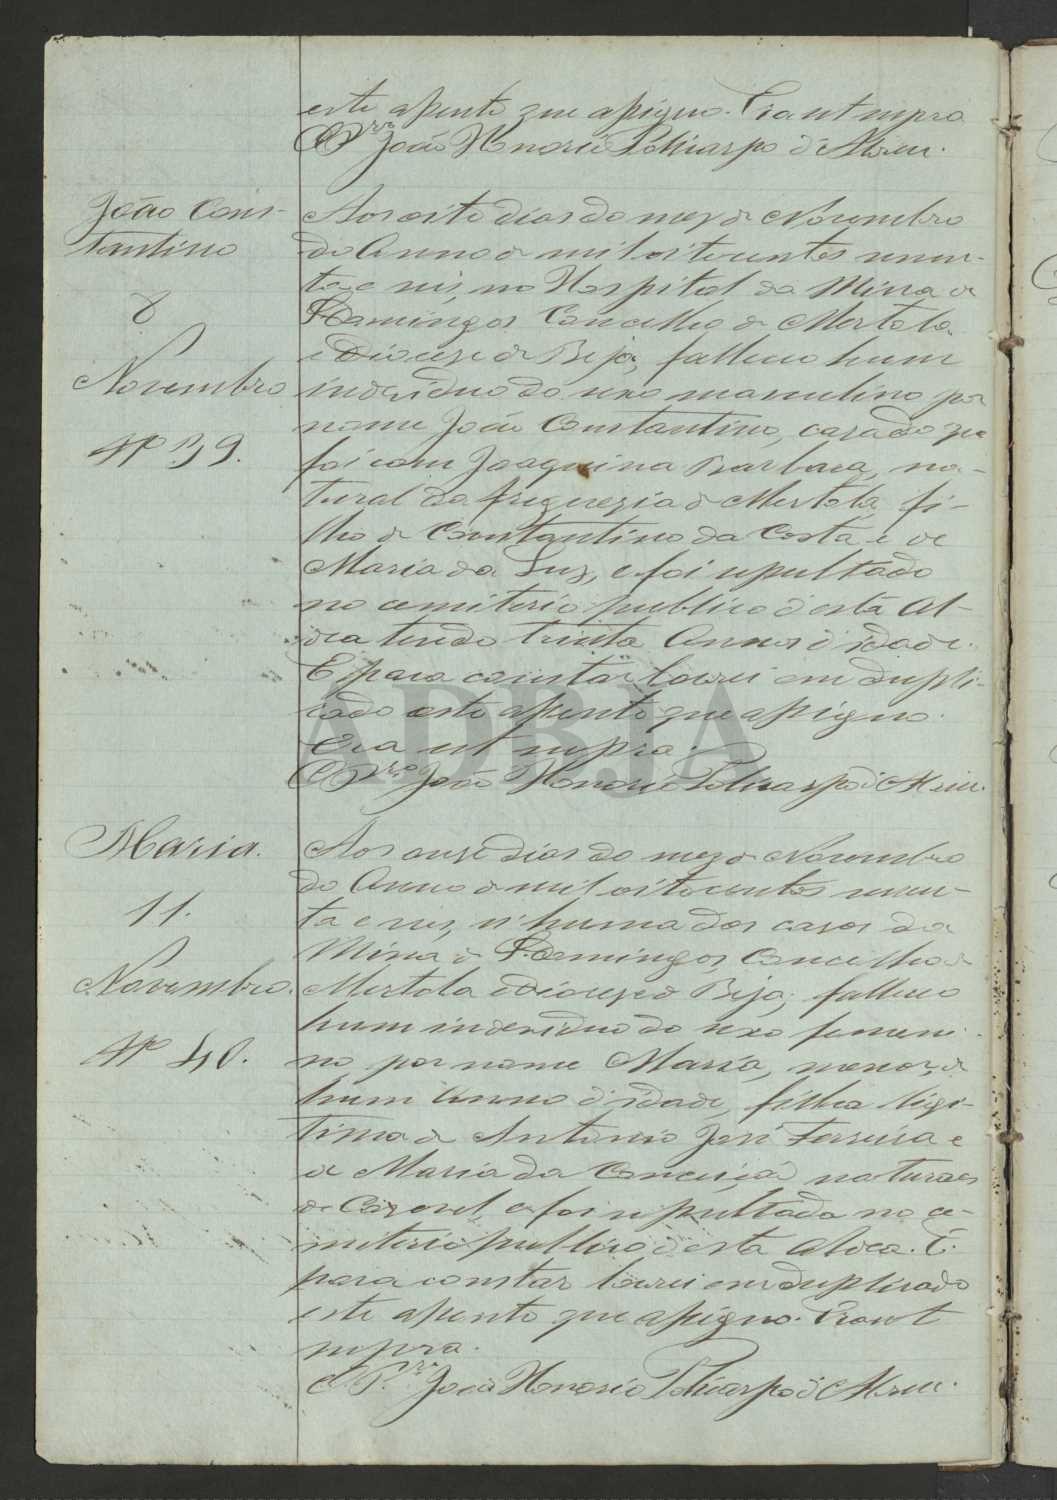 este assento que assigno. Era ut supra
O Pr.or João Honorio Policarpo d'Abreu.
João Cons-
tantino
8
Novembro
Nº 39.
Aos oito dias do mez de Novembro
do Anno de mil oitocentos noven-
ta e seis, no Hospital da Mina de
S. Domingos Concelho de Mertola
e Diocese de Beja, falleceu hum
individuo do sexo masculino por
nome João Constantino, casado que
foi com Joaquina Barbara, na-
tural da freguezia de Mertola, fi-
lho de Constantino da Costa e de
Maria da Luz, e foi sepultado
no cemiterio publico d'esta Al-
dea tendo trinta Annos d'idade.
E para constar lavrei em dupli-
cado este assento que assigno.
Era ut supra.
O Pr.or João Honorio Policarpo d'Abreu.
ADBJA
Maria.
11.
Novembro.
Nº 40.
Aos onze dias do mez de Novembro
do Anno de mil oitocentos noven-
ta e seis, n'huma das casas da
Mina de S. Domingos, Concelho de
Mertola e Diocese de Beja, falleceu
hum individuo do sexo femeni-
no por nome Maria, menor, de
hum Anno d'idade, filha ligi-
tima de Antonio José Ferreira e
de Maria da Conceição naturaes
de e foi sepultada no ce-
miterio publico d'esta Aldea. E
para constar lavrei em duplicado
este assento que assigno. Era ut
supra.
O Pr.or João Honorio Policarpo d'Abreu.